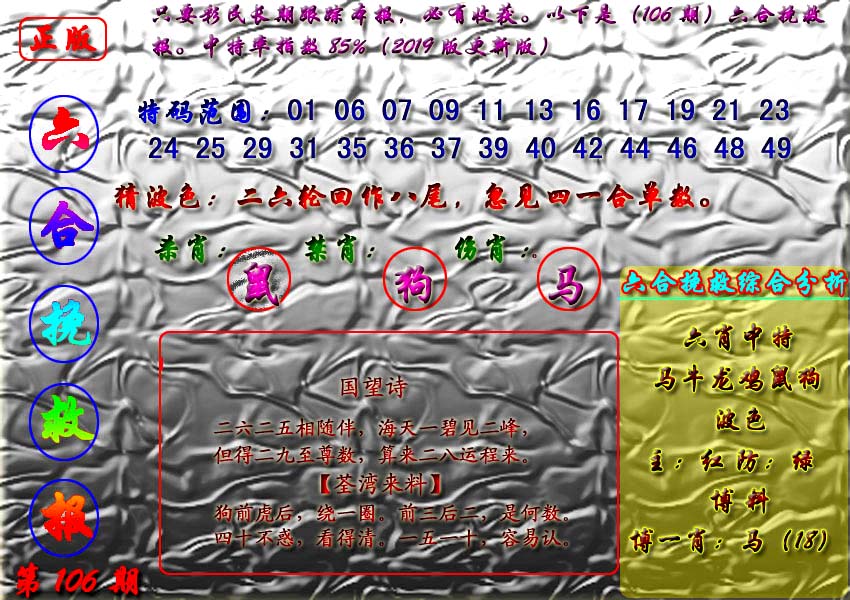 正版
只要彩民长期跟踪本报，必有收获。以下是（106期）六合挽救
报。中特率指数85%（2019版更新版）
六
合
挽
救
报
第106期
特码范围：01 06 07 09 11 13 16 17 19 21 23
24 25 29 31 35 36 37 39 40 42 44 46 48 49
猜波色：二六轮回作八尾，忽见四一合单数。
杀肖：鼠 禁肖：狗 伤肖：马
国望诗
二六二五相随伴，海天一碧见二峰，
但得二九至尊数，算来二八运程来。
【荃湾来料】
狗前虎后，绕一圈。前三后二，是何数。
四十不惑，看得清。一五一十，容易认。
六合挽救综合分析
六肖中特
马牛龙鸡鼠狗
波色
主：红防：绿
博料
博一肖：马（18）